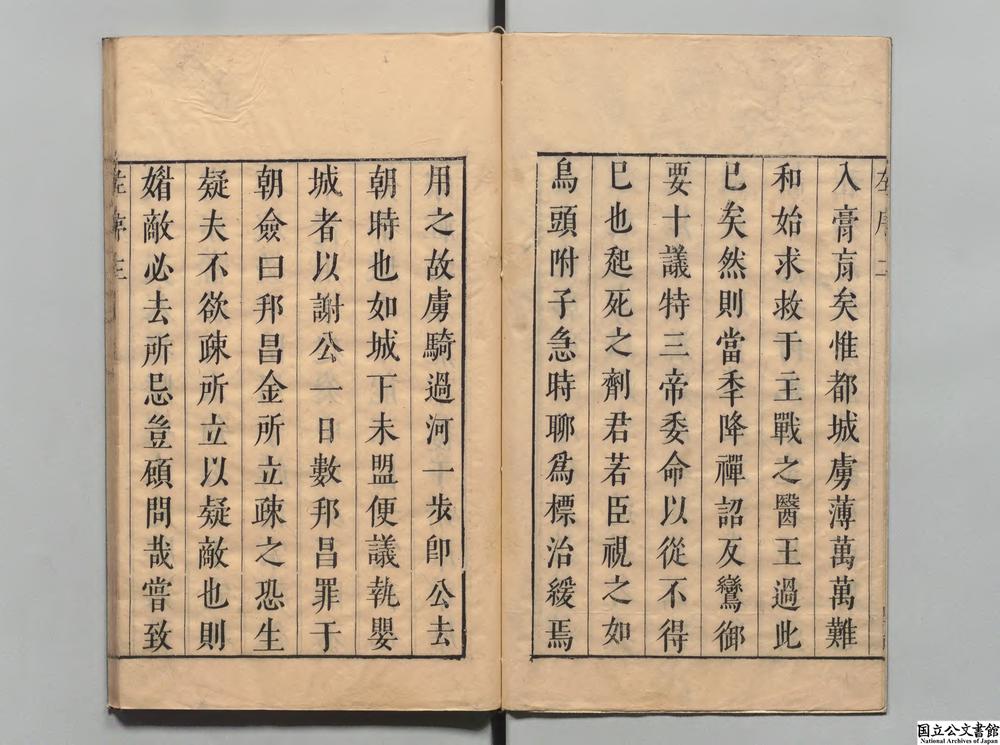 入膏肓矣惟都城虜薄萬萬難
和始求救于主戰之醫王過此
已矣然則當秊降禪詔反鸞御
要十議特三帝委命以從不得
已也起死之劑君若臣視之如
烏頭附子急時聊爲標治緩焉
用之故虜騎過河一步卽公去
朝時也如城下未盟便議執嬰
城者以謝公一日數邦昌罪于
朝僉曰邦昌金所立疎之恐生
疑夫不欲疎所立以疑敵也則
媚敵必去所忌豈頋問哉嘗致
国立公文書館
National Archives of Japan